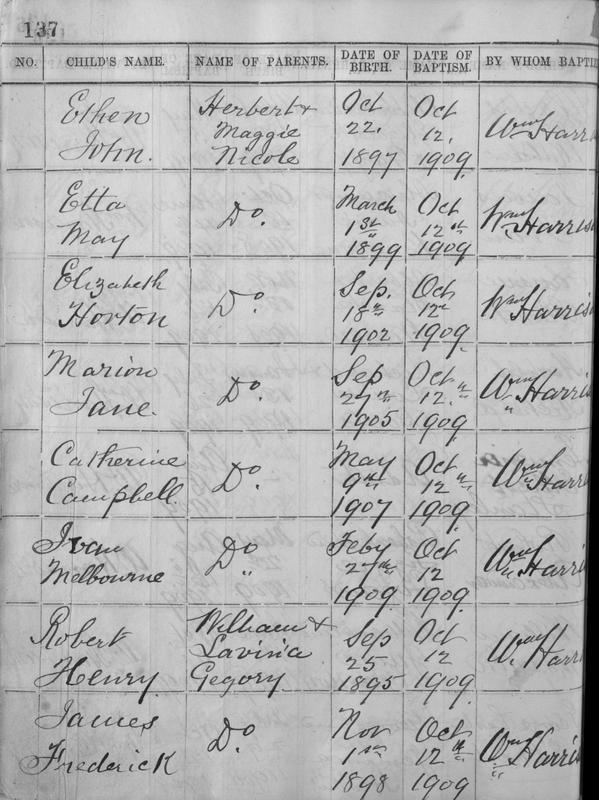 137
NO. CHILD'S NAME. NAME OF PARENTS. DATE OF BIRTH. DATE OF BAPTISM. BY WHOM BAPTI
Ethen John. Herbert & Maggie Nicole Oct 22. 1897 Oct 12. 1909. Wm Harris
Etta May Do. March 1st 1899 Oct 12th 1909 Wm Harris
Elizabeth Horton Do. Sep. 18th 1902 Oct 12th 1909. Wm Harris
Marion Jane. Do. Sep 27th 1905 Oct 12.th 1909. Wm Harris
Catherine Campbell. Do. May 9th 1907 Oct 12th 1909. Wm Harris
Ivan Melbourne Do Feby 27th 1909 Oct 12 1909. Wm Harris
Robert Henry. William & Lavinia Gegory. Sep 25 1895 Oct 12 1909. Wm Harris
James Frederick Do. Nov 1st 1898 Oct 12th 1909 Wm Harris